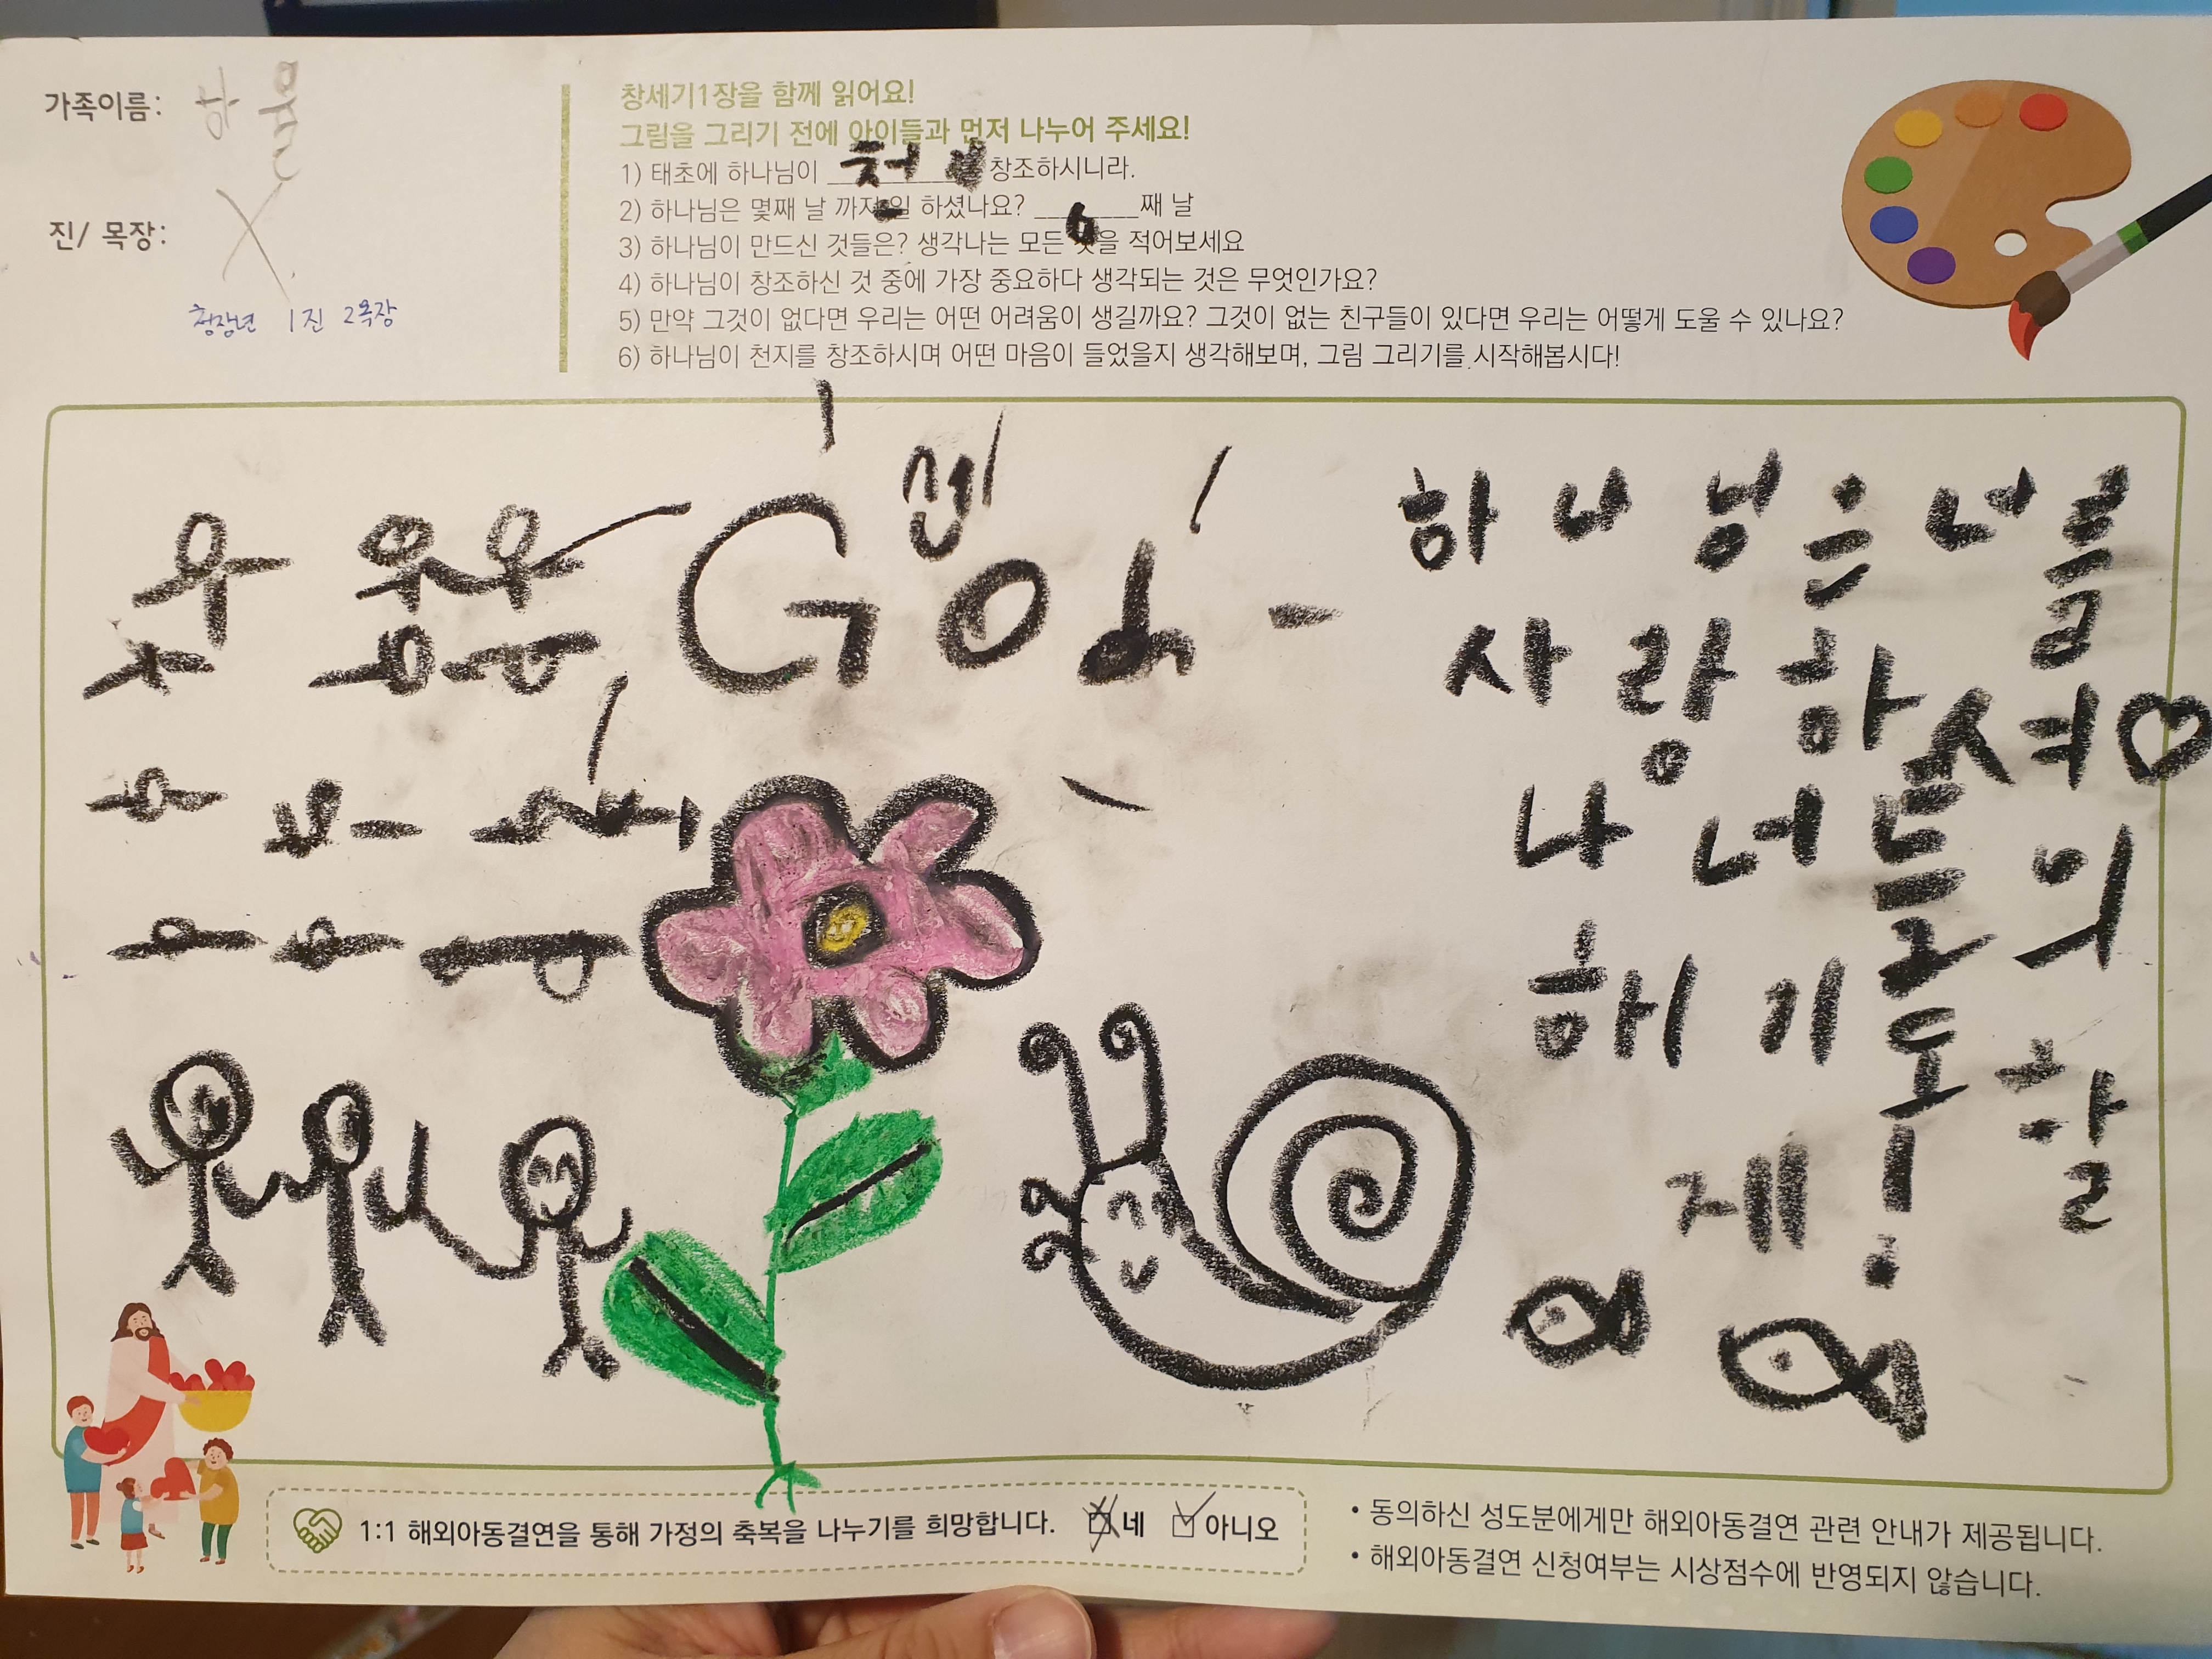 가족이름: 하율
진/ 목장:
청장년 1진 2목장
창세기1장을 함께 읽어요!
그림을 그리기 전에 아이들과 먼저 나누어 주세요!
1) 태초에 하나님이 창조하시니라.
2) 하나님은 몇째 날 까지 일 하셨나요? 6 째 날
3) 하나님이 만드신 것들은? 생각나는 모든 것을 적어보세요
4) 하나님이 창조하신 것 중에 가장 중요하다 생각되는 것은 무엇인가요?
5) 만약 그것이 없다면 우리는 어떤 어려움이 생길까요? 그것이 없는 친구들이 있다면 우리는 어떻게 도울 수 있나요?
6) 하나님이 천지를 창조하시며 어떤 마음이 들었을지 생각해보며, 그림 그리기를 시작해봅시다!
God
하나님은 너를
사랑하셔♡
나 너들의
해기도할
제!
1:1 해외아동결연을 통해 가정의 축복을 나누기를 희망합니다. 네 아니오
• 동의하신 성도분에게만 해외아동결연 관련 안내가 제공됩니다.
• 해외아동결연 신청여부는 시상점수에 반영되지 않습니다.